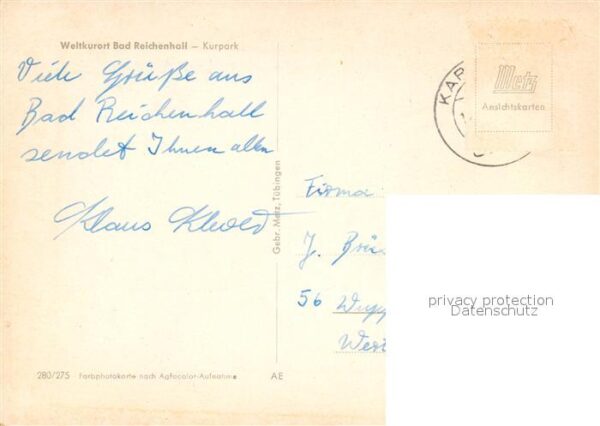 Weltkurort Bad Reichenhall — Kurpark
Viele Grüße aus
Bad Reichenhall
sendet Ihnen allen
Klaus
Gebr. Metz, Tübingen
KAP
Metz
Ansichtskarten
Firma
J. Brü
56 Wupp
West
privacy protection
Datenschutz
280/275 Farbphotokarte nach Agfacolor-Aufnahme
AE